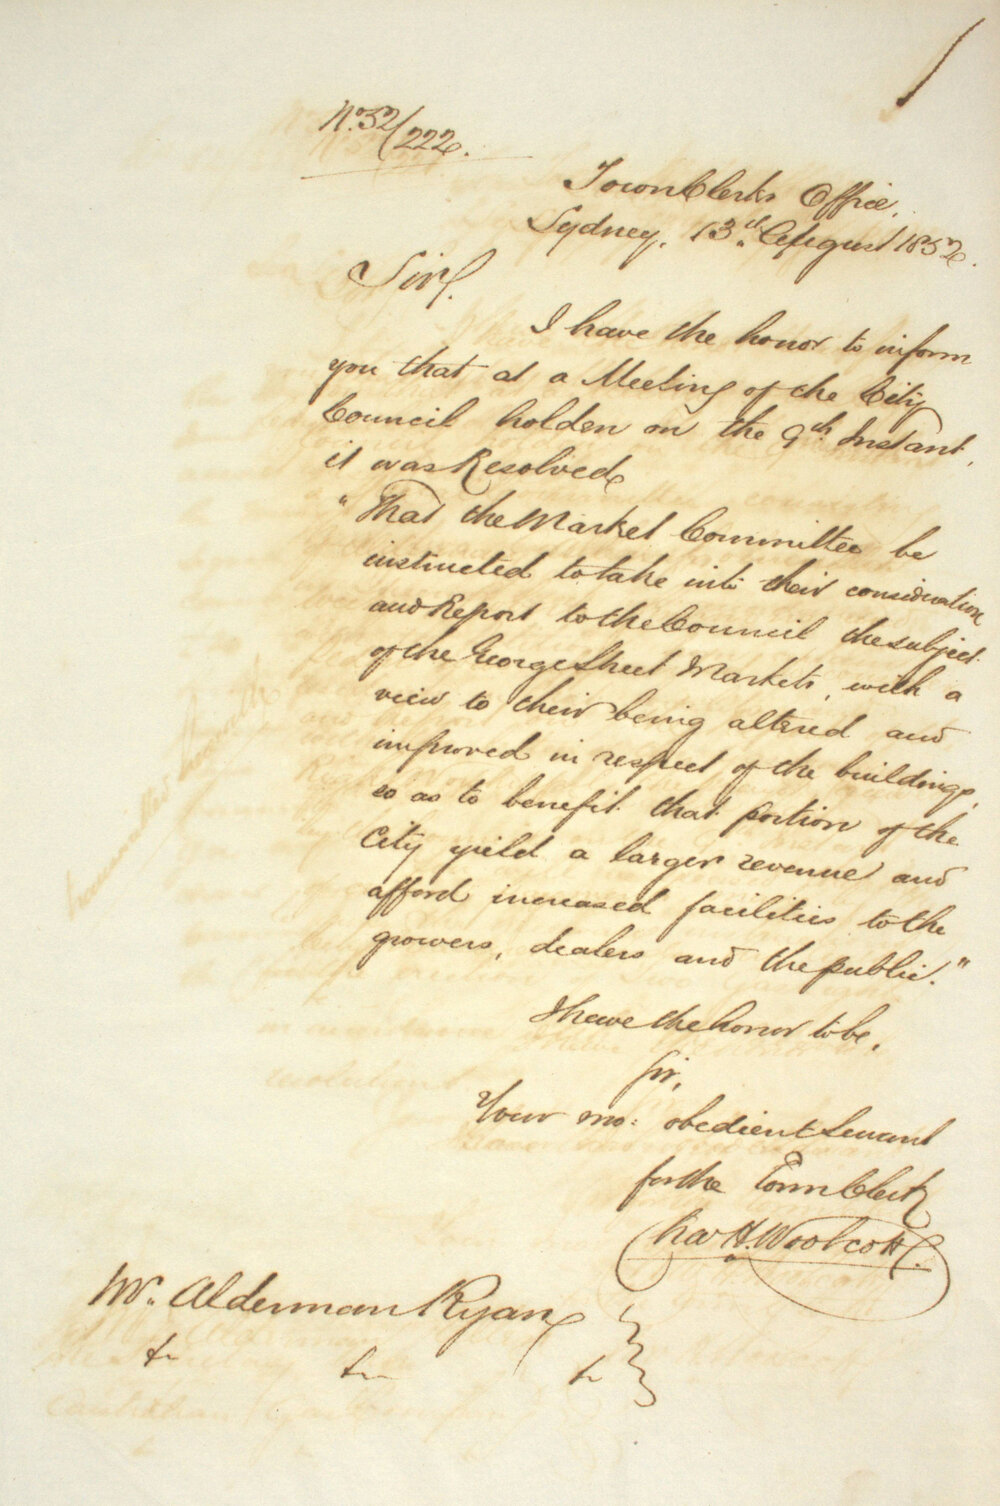 No. 52/222.
Town Clerks Office,
Sydney, 13th August 1852.
Sir,
I have the honor to inform
you that at a Meeting of the City
Council holden on the 9th Instant,
it was Resolved
"That the Market Committee be
instructed to take into their consideration
and Report to the Council the subject
of the George Street Markets, with a
view to their being altered and
improved in respect of the buildings,
so as to benefit that portion of the
City yield a larger revenue and
afford increased facilities to the
growers, dealers and the public."
I have the honor to be,
Sir,
Your mo: obedient Servant
for the Town Clerk
Chas H. Woolcott
Mr. Alderman Ryan
&c &c &c